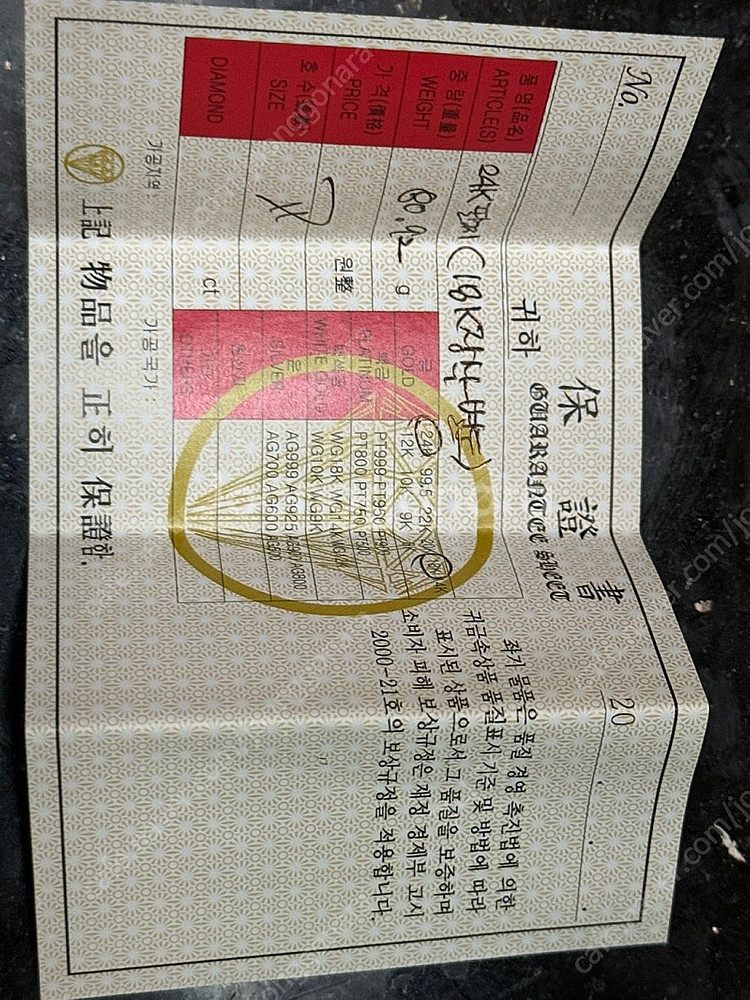 No.
保 證 書
GUARANTEE SHEET
20 . . .
귀하
품 명(品名)
ARTICLE(S)
24K (18K장식
중 량(重量)
WEIGHT
g
가 격(價格)
PRICE
원整
호 수(號數)
SIZE
DIAMOND
ct
금
GOLD
24K 99.5 22K 18K
12K 10K 9K
백금
PLATINUM
PT999 PT950 PT900
PT800 PT750
백색금
WHITE GOLD
WG18K WG14K
WG10K WG9K
은
SILVER
AG999 AG925 AG900 AG800
AG700 AG600
OTHERS
좌기 물품은 품질 경영 촉진법에 의한
귀금속상품 품질표시 기준 및 방법에 따라
표시된 상품으로서 그 품질을 보증하며
소비자 피해 보상규정은 재정 경제부 고시
2000-21호의 보상규정을 적용합니다.
가공지역 :
가공국가
上記 物品을 正히 保證함.